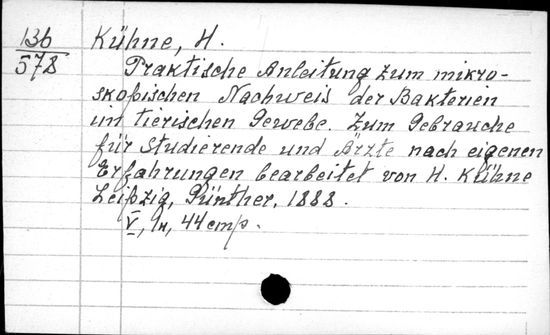 136
578
Kühne, H.
Praktische Anleitung zum mikro-
skopischen Nachweis der Bakterien
im tierischen Gewebe. Zum Gebrauche
für Studierende und Ärzte nach eigenen
Erfahrungen bearbeitet von H. Kühne
Leipzig, Günther, 1888.
V, 44 стр.